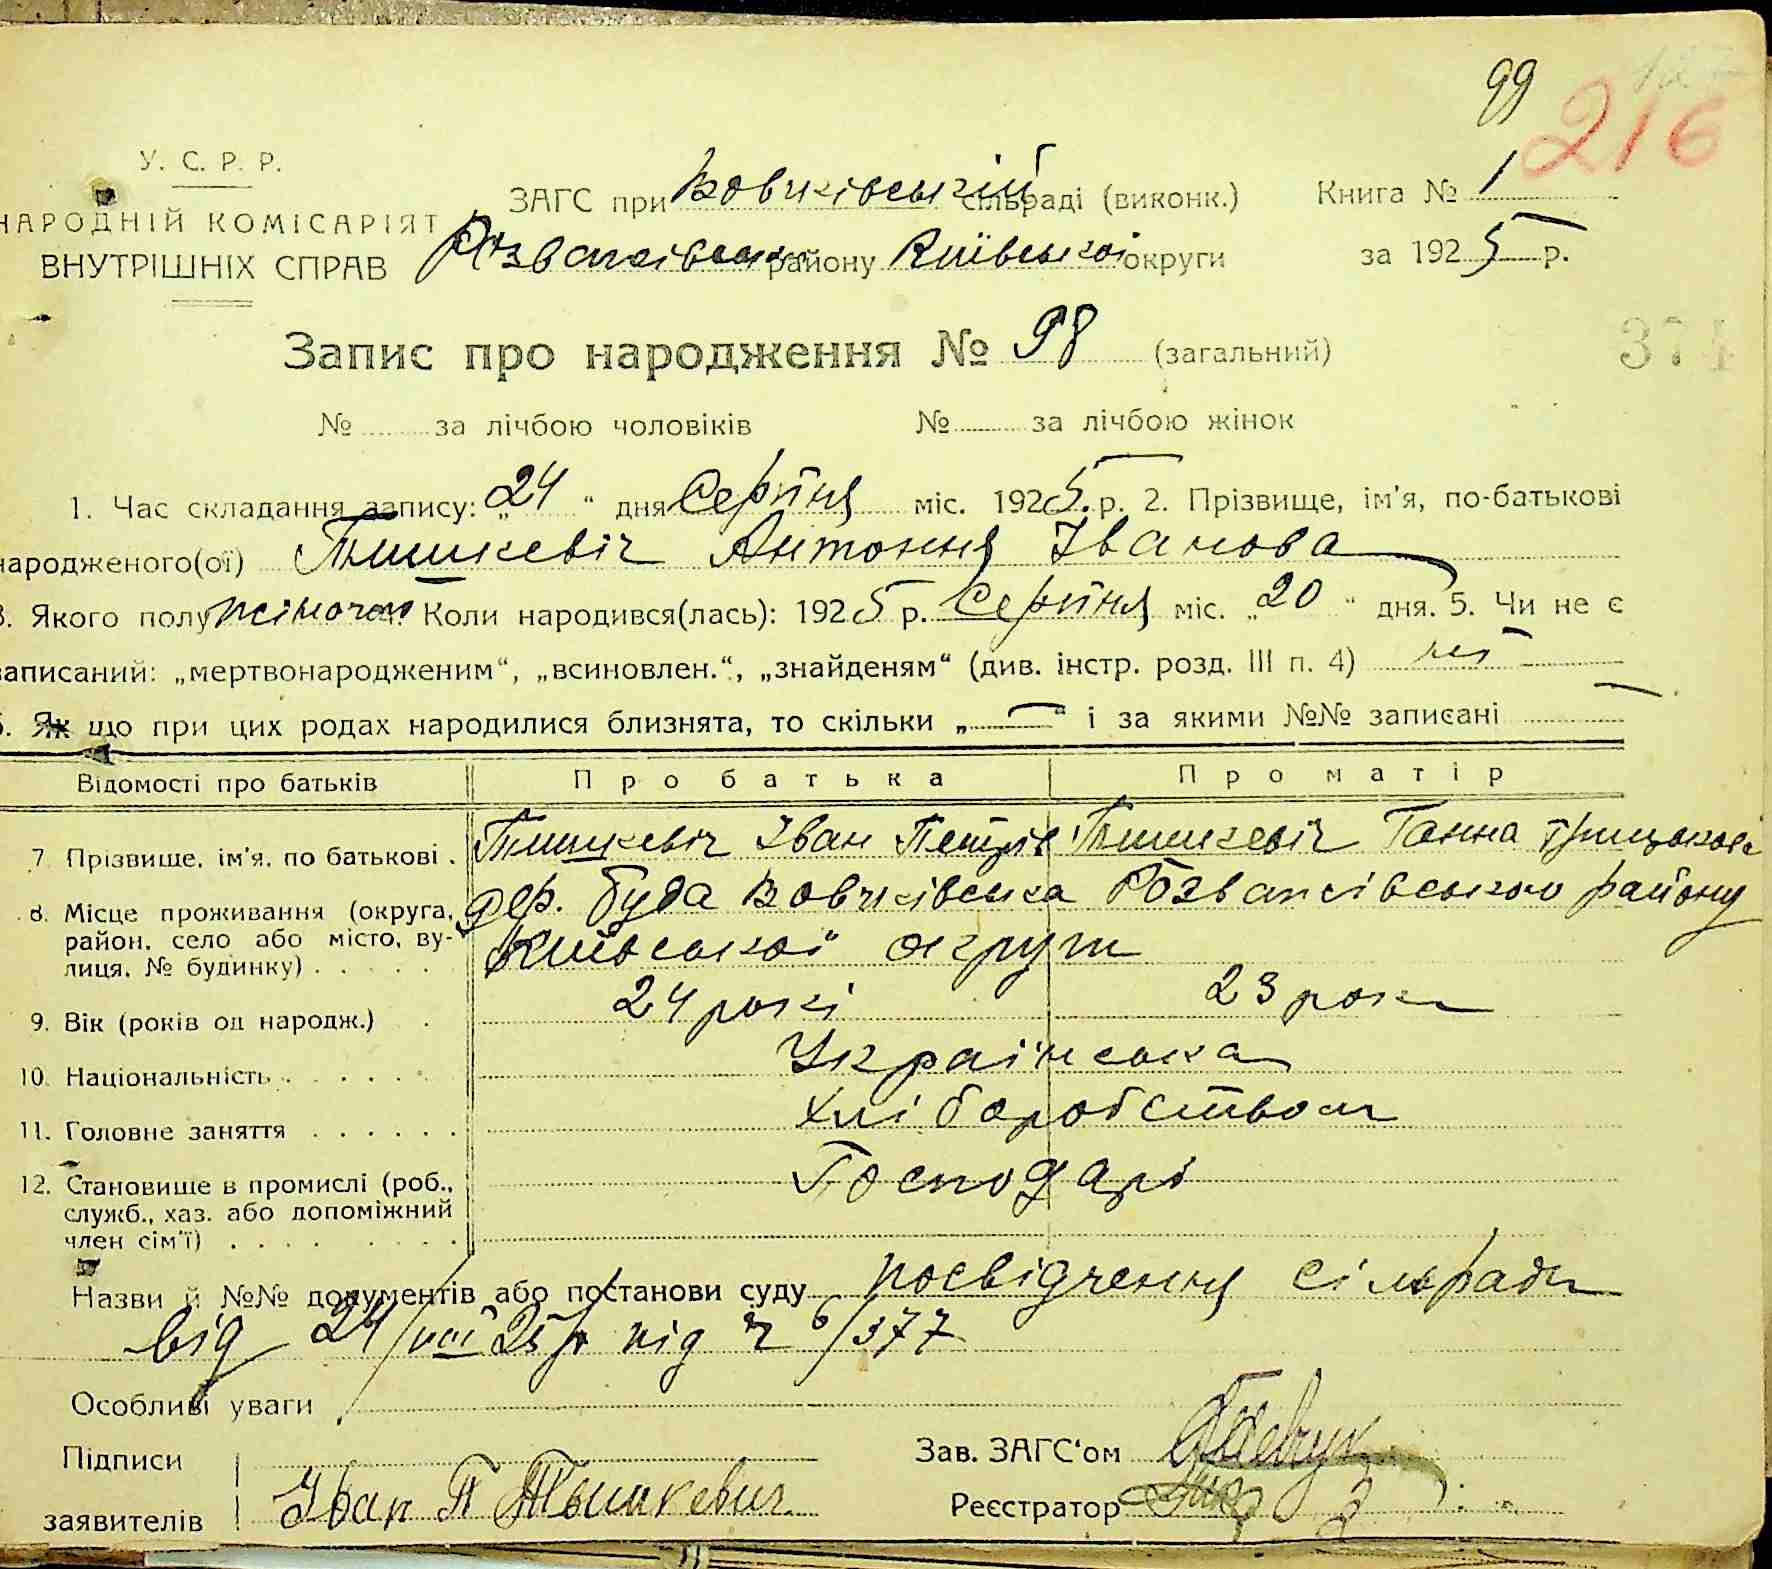 99
216
У. С. Р. Р.
НАРОДНІЙ КОМІСАРІЯТ
ВНУТРІШНІХ СПРАВ
ЗАГС при Вовчківській сільраді (виконк.)
Розважівськ району Київської округи
Книга № 1
за 1925 р.
374
Запис про народження № 98 (загальний)
№ за лічбою чоловіків № за лічбою жінок
1. Час складання запису: „24“ дня Серпня міс. 1925 р. 2. Прізвище, ім'я, по-батькові
народженого(ої) Тишкевіч Антоння Іванова
3. Якого полу жіночого Коли народився(лась): 1925 р. Серпня міс. „20“ дня. 5. Чи не є
записаний: „мертвонародженим“, „всиновлен.“, „знайденям“ (див. інстр. розд. III п. 4) ні
6. Як що при цих родах народилися близнята, то скільки „—“ і за якими №№ записані —
Відомості про батьків Про батька Про матір
7. Прізвище, ім'я, по батькові . Тишкевіч Іван Петрів Тишкевіч Ганна Грицькова
8. Місце проживання (округа, район, село або місто, вулиця, № будинку) . . . . . дер. Буда Вовчківська Розважівського району
Київської округи
9. Вік (років од народж.) . 24 рокі 23 роки
10. Національність . . . . . . Українська
11. Головне заняття . . . . . . Хліборобством
12. Становище в промислі (роб., служб., хаз. або допоміжний член сім'ї) . . . . . . . . Господарі
Назви й №№ документів або постанови суду посвідчення сільради
від 24/VIII 25 р під ч 6/377
Особливі уваги
Підписи
заявителів Іван П Тышкевич
Зав. ЗАГС'ом
Реєстратор